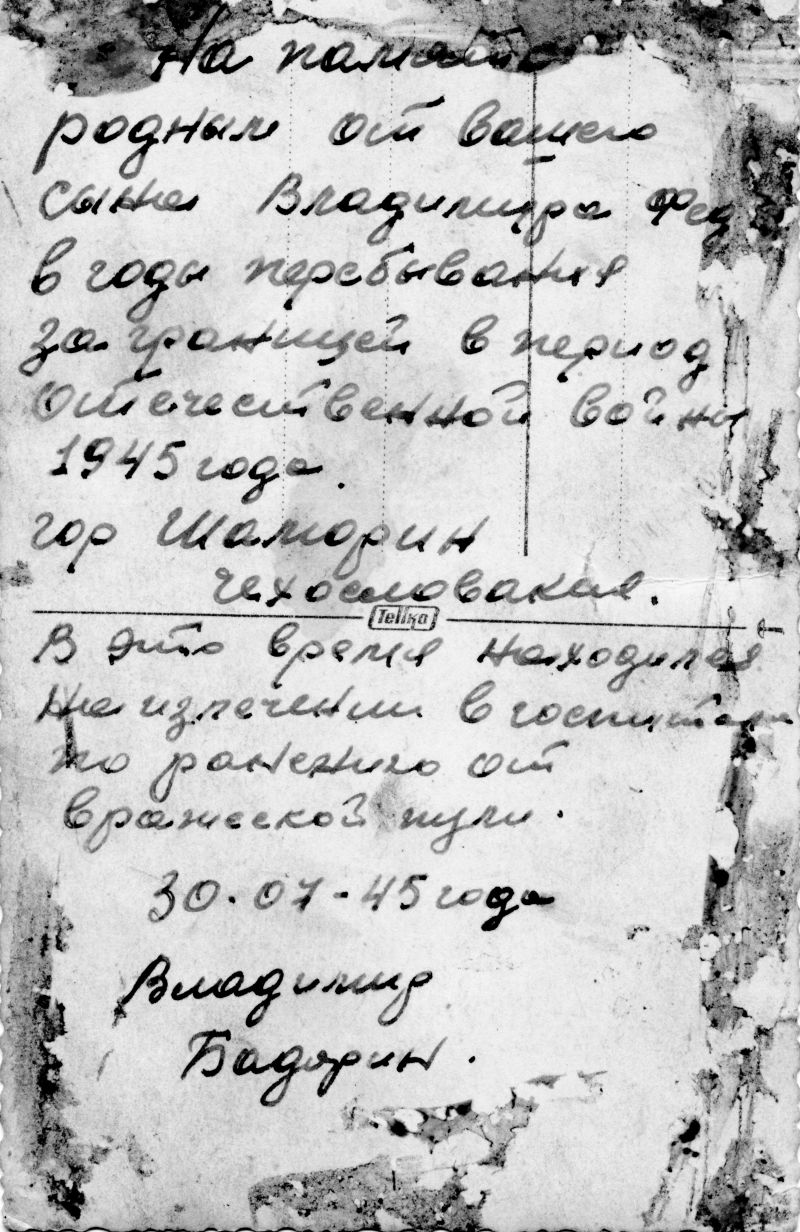 На память
родным от вашего
сына Владимира Фед
в годы перебывания
за границей в период
Отечественной войны
1945 года.
гор Шаморин
Чехословакия.
Tellko
В это время находился
на излечении в госпитали
по ранению от
вражеской пули.
30.07-45 года
Владимир
Бадярин.